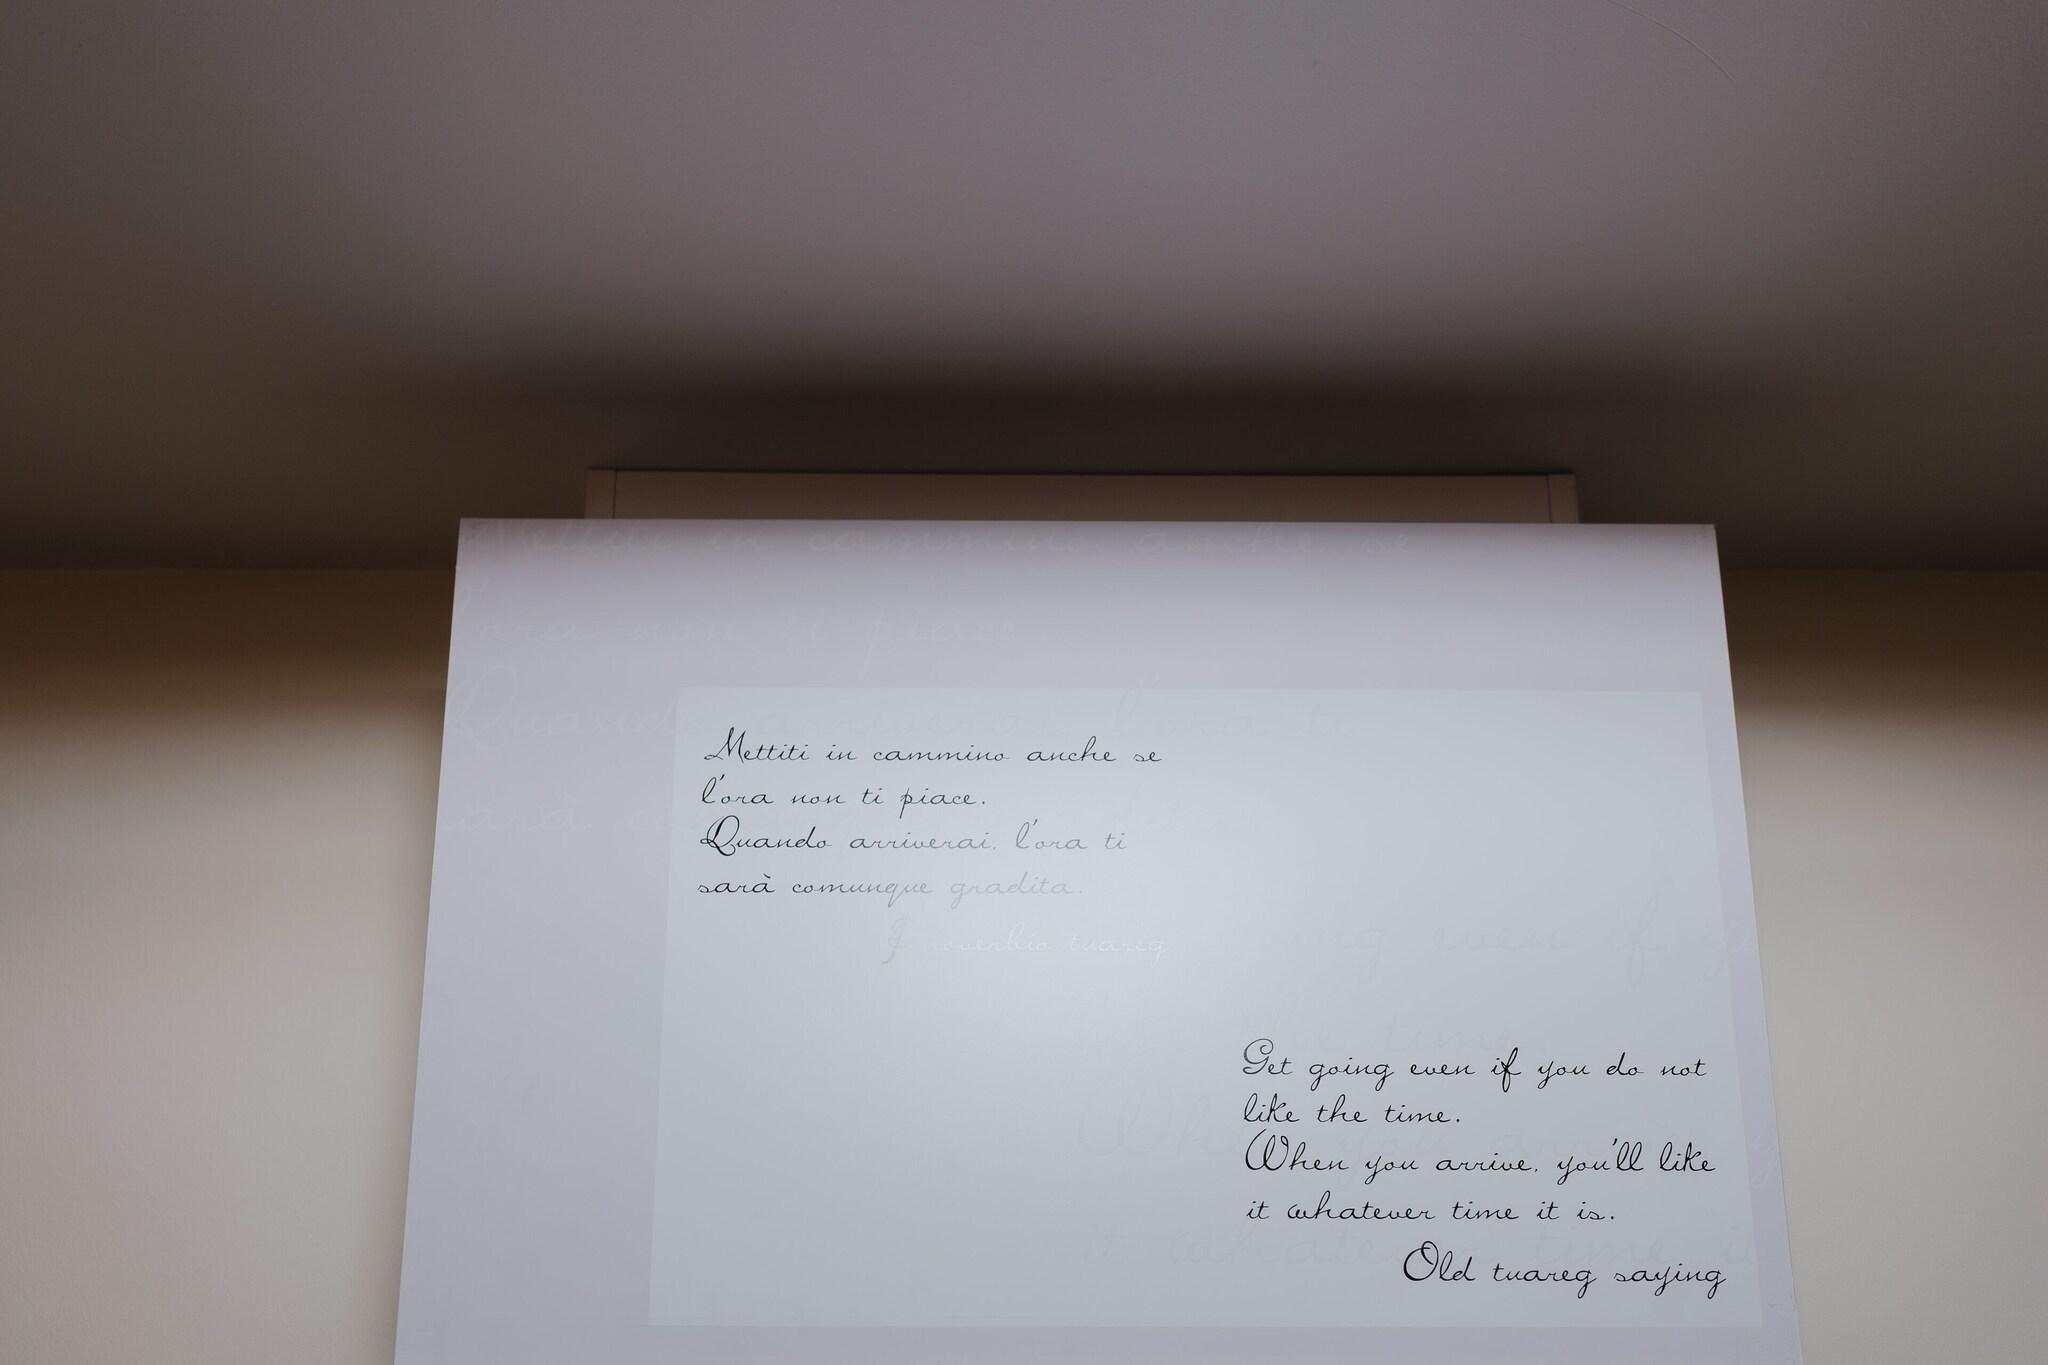 Mettiti in cammino anche se
l'ora non ti piace.
Quando arriverai, l'ora ti
sarà comunque gradita.
Proverbio tuareg
Get going even if you do not
like the time.
When you arrive, you'll like
it whatever time it is.
Old tuareg saying